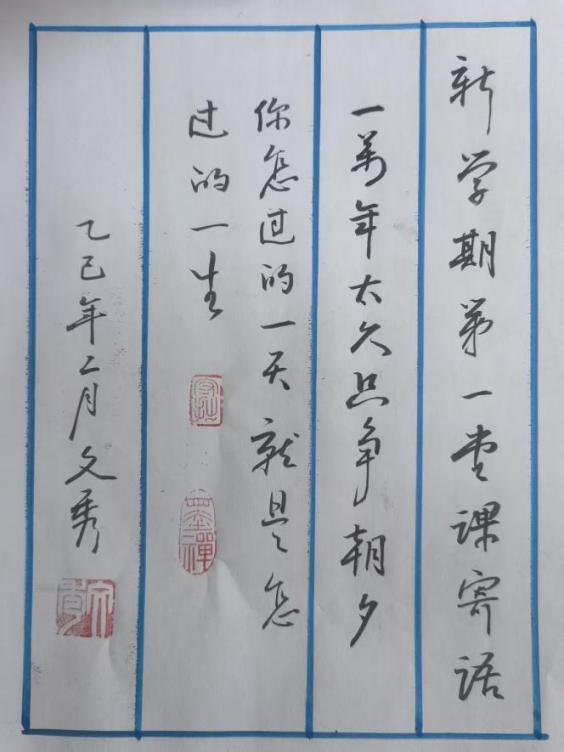 新学期第一堂课寄语
一万年太久只争朝夕
你怎过的一天就是怎
过的一生
乙巳年二月文秀
墨禅